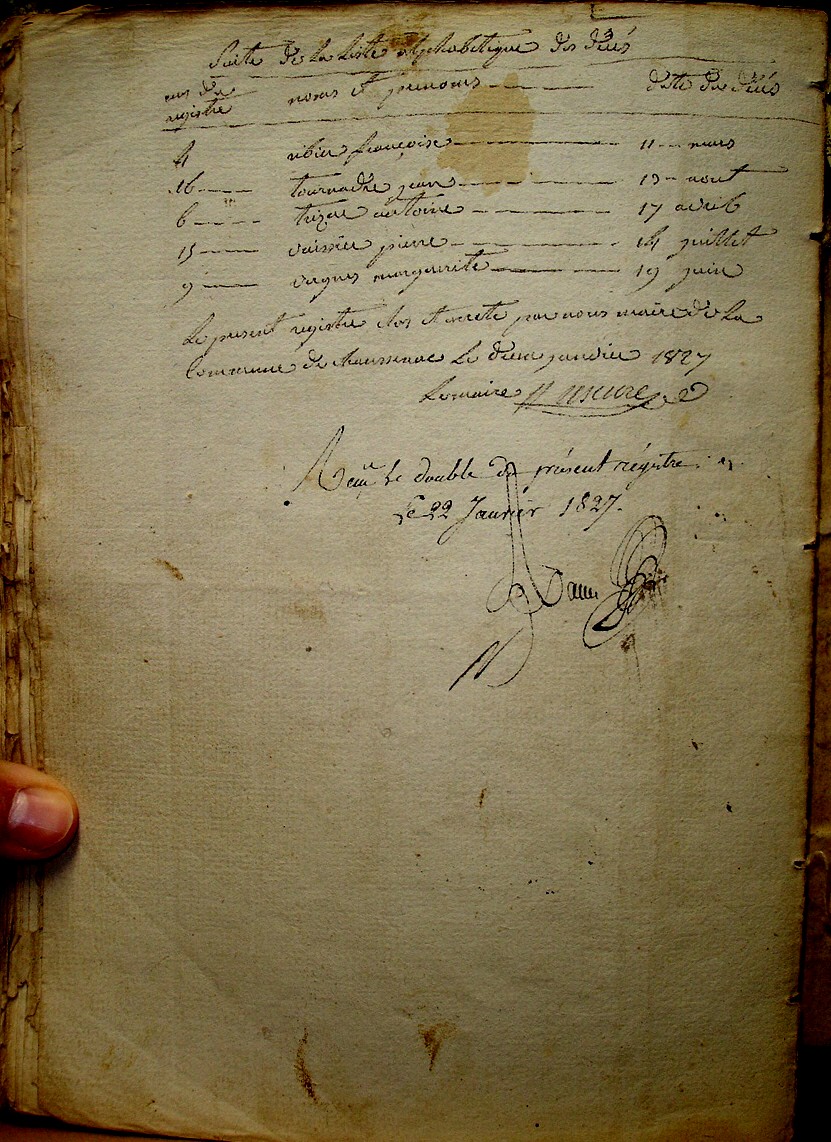 Suite de la Liste alphabetique des décés
nos du registre noms et prenoms date du décés
4 ribier françoise 11 mars
16 tournadre jean 13 aout
6 trizac antoine 17 avril
15 vaissier pierre 14 juillet
9 vergnes marguerite 19 juin
Le present registre clos et arreté par nous maire de la
Commune de chaussenac Le deux janvier 1827
Le maire
Reçu le double du présent régistre
Le 22 Janvier 1827.